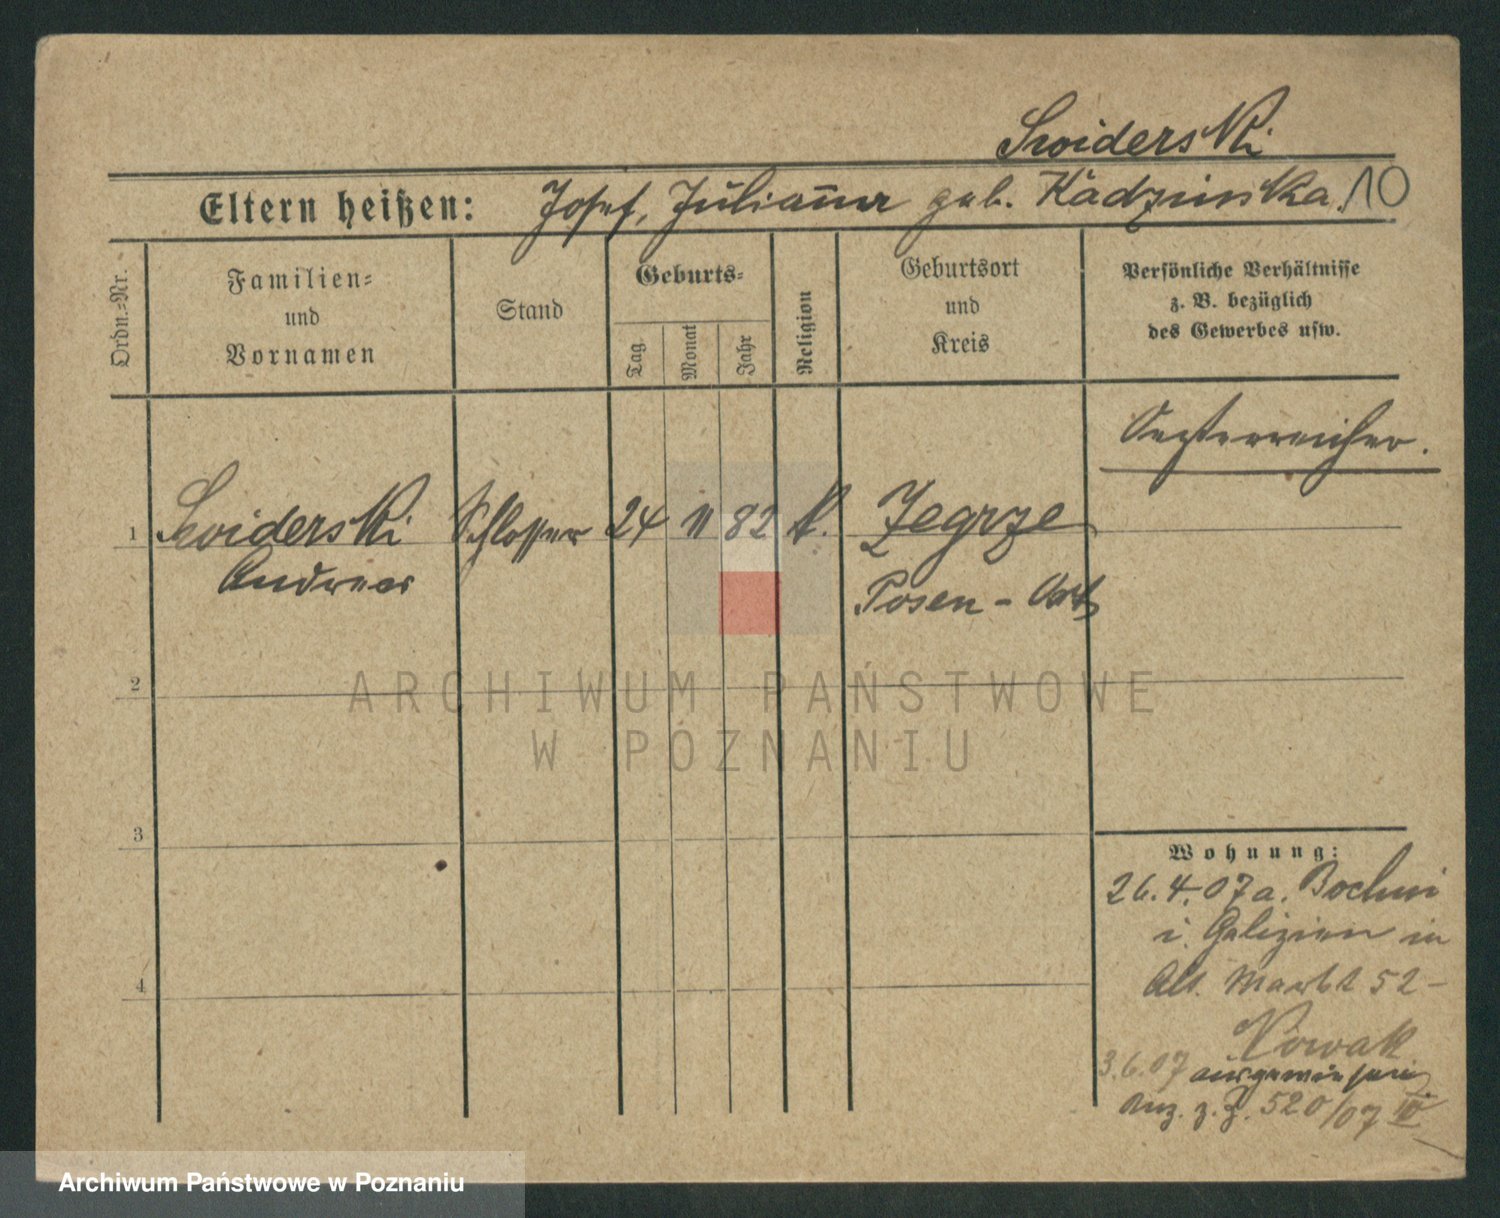 Swiderski
Eltern heißen: Josef, Julianna geb. Kadzinska. 10
Ordn.-Nr.
Familien-
und
Vornamen
Stand
Geburts-
Tag.
Monat
Jahr
Religion
Geburtsort
und
Kreis
Persönliche Verhältnisse
z. B. bezüglich
des Gewerbes usw.
Oesterreicher.
1 Swiderski Schlosser 24 11 82 k. Zegrze
Andreas Posen - Ost
2
3
4
Wohnung:
26.4.07 a. Bochni
i. Galizien in
Alt. Markt 52 -
Nowak
3.6.07 ausgewiesen
Anz. z. J. 520/07 IV
ARCHIWUM PAŃSTWOWE
W POZNANIU
Archiwum Państwowe w Poznaniu